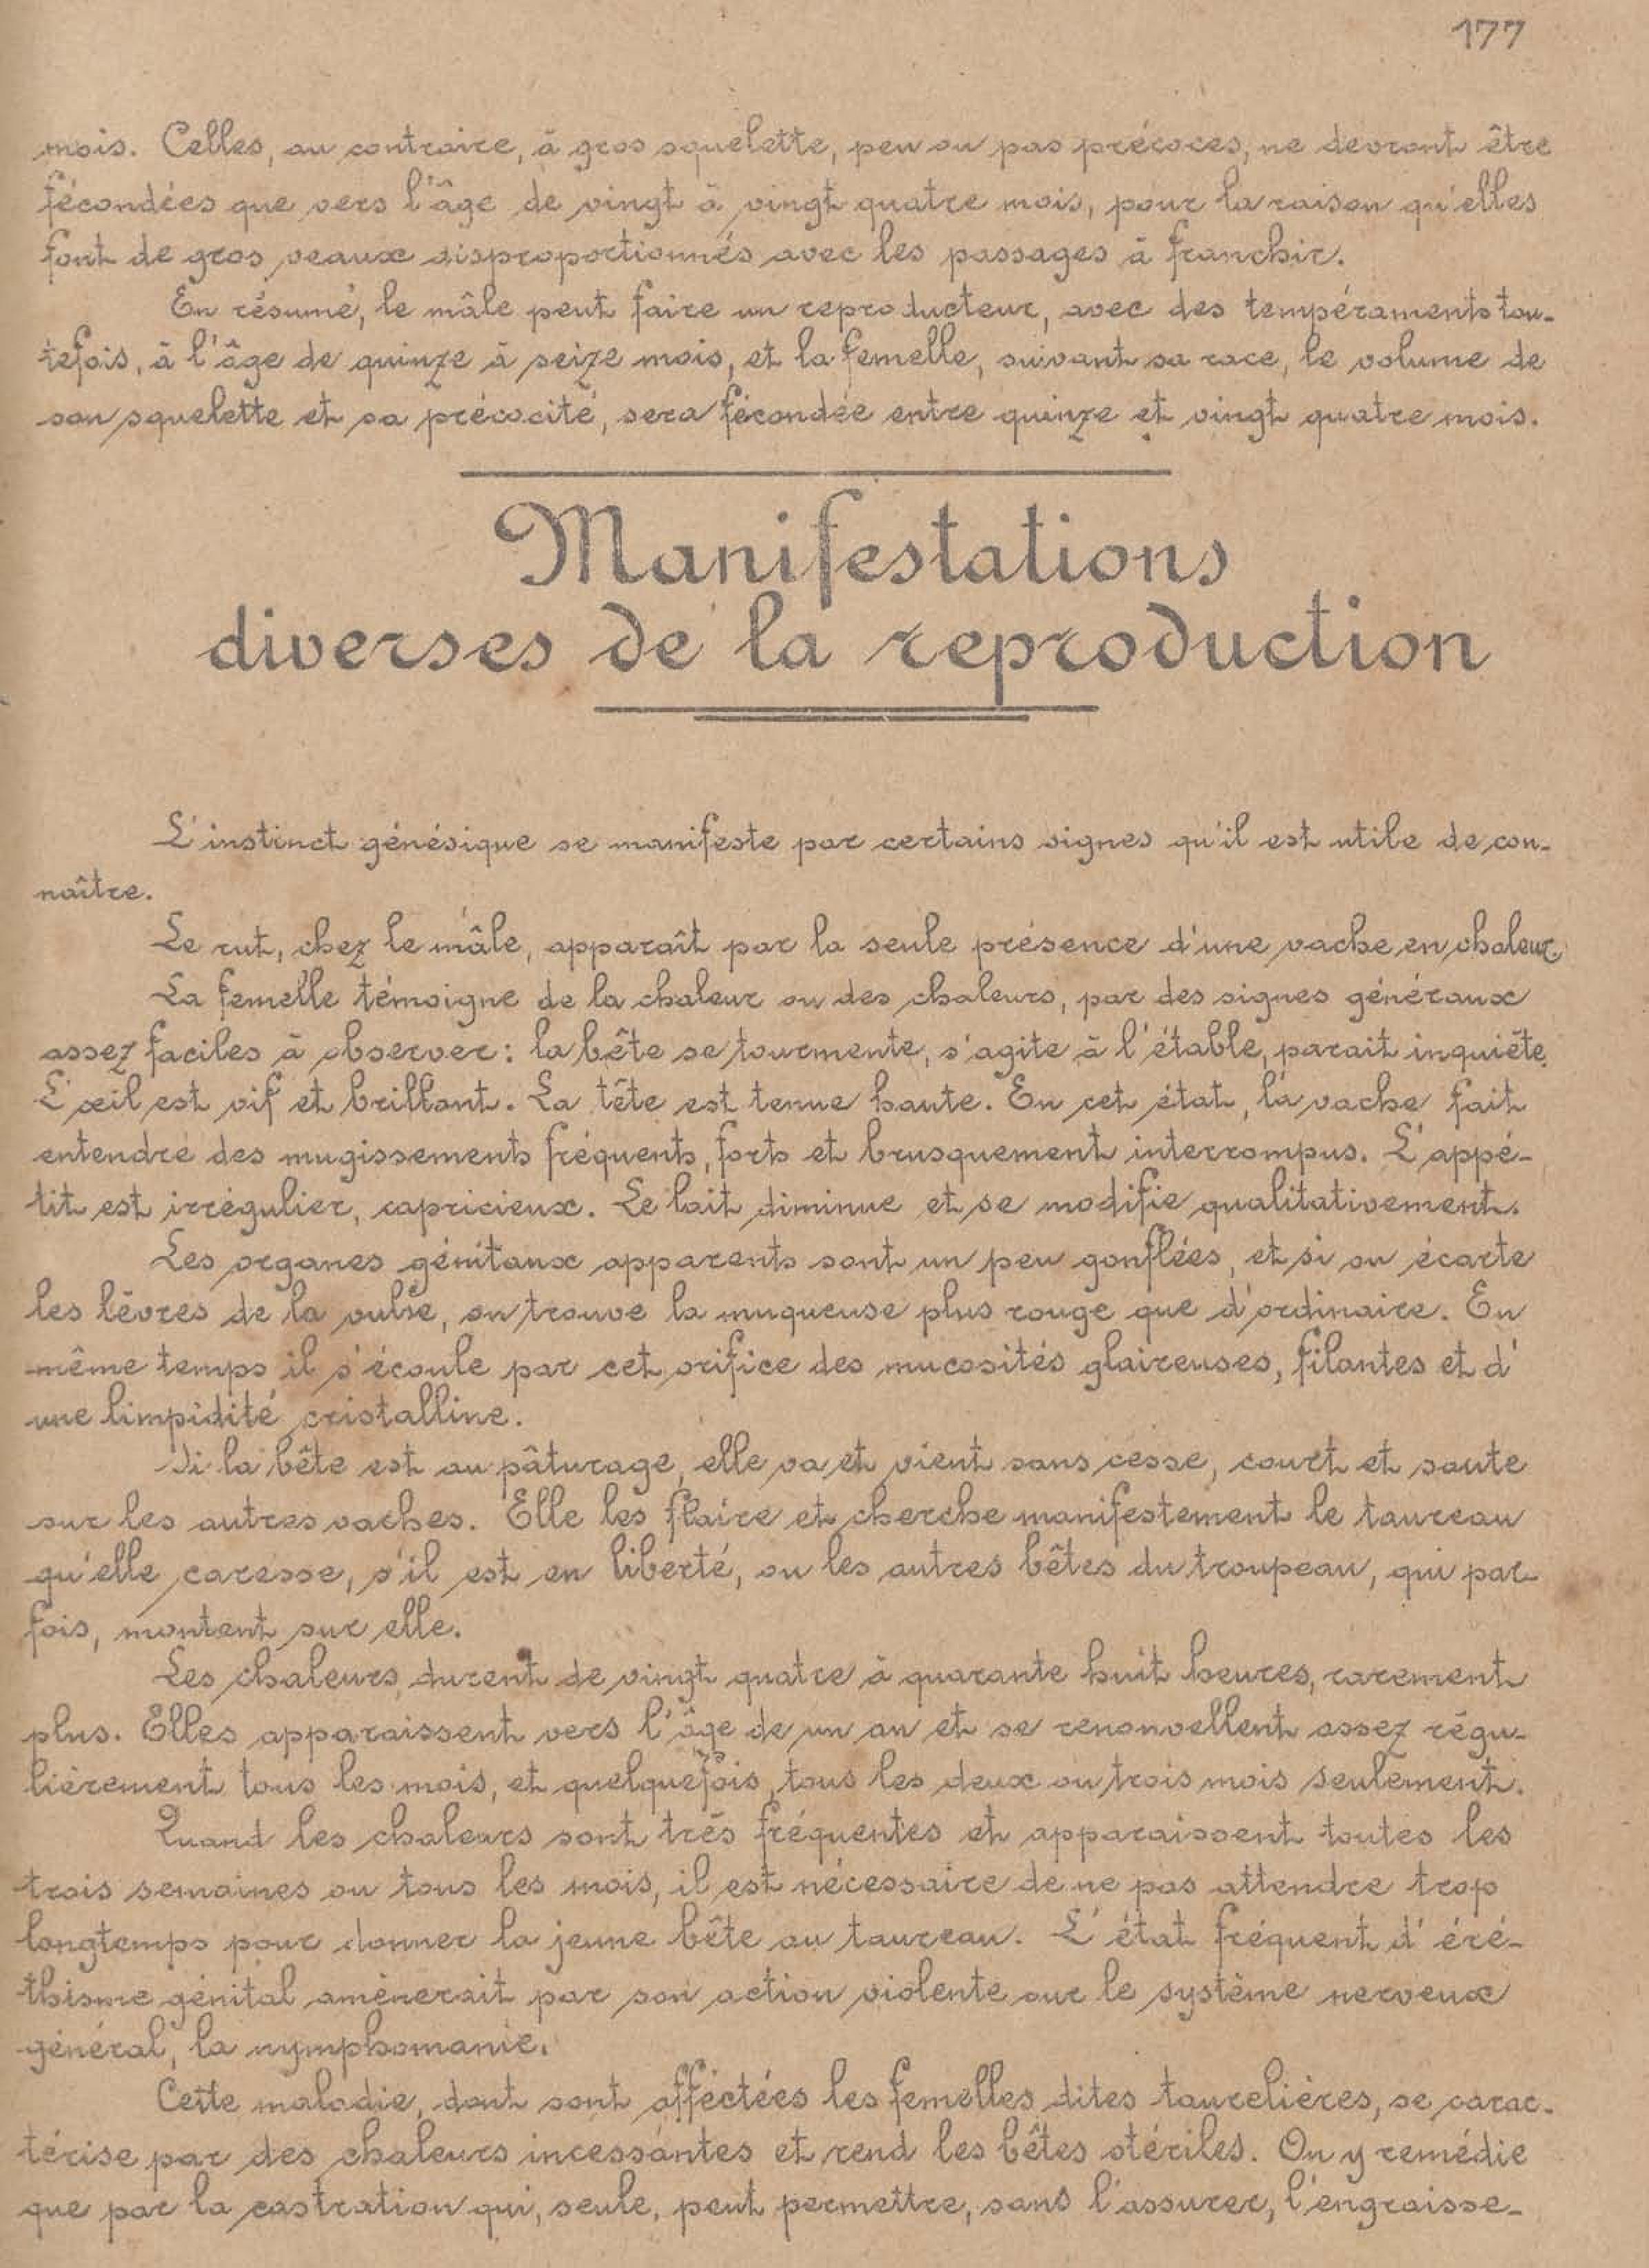 177
mois. Celles, au contraire, à gros squelette, peu ou pas précoces, ne devront être
fécondées que vers l'âge de vingt à vingt quatre mois, pour la raison qu'elles
font de gros veaux disproportionnés avec les passages à franchir.
En résumé, le mâle peut faire un reproducteur, avec des tempéraments tou-
tefois, à l'âge de quinze à seize mois, et la femelle, suivant sa race, le volume de
son squelette et sa précocité, sera fécondée entre quinze et vingt quatre mois.
Manifestations
diverses de la reproduction
L'instinct génésique se manifeste par certains signes qu'il est utile de con-
naître.
Le rut, chez le mâle, apparaît par la seule présence d'une vache en chaleur.
La femelle témoigne de la chaleur ou des chaleurs, par des signes généraux
assez faciles à observer : la bête se tourmente, s'agite à l'étable, parait inquiète.
L'œil est vif et brillant. La tête est tenue haute. En cet état, la vache fait
entendre des mugissements fréquents, forts et brusquement interrompus. L'appé-
tit est irrégulier, capricieux. Le lait diminue et se modifie qualitativement.
Les organes génitaux apparents sont un peu gonflées, et si on écarte
les lèvres de la vulve, on trouve la muqueuse plus rouge que d'ordinaire. En
même temps il s'écoule par cet orifice des mucosités glaireuses, filantes et d'
une limpidité cristalline.
Si la bête est au pâturage, elle va et vient sans cesse, court et saute
sur les autres vaches. Elle les flaire et cherche manifestement le taureau
qu'elle caresse, s'il est en liberté, ou les autres bêtes du troupeau, qui par-
fois, montent sur elle.
Les chaleurs durent de vingt quatre à quarante huit heures, rarement
plus. Elles apparaissent vers l'âge de un an et se renouvellent assez régu-
lièrement tous les mois, et quelquefois, tous les deux ou trois mois seulement.
Quand les chaleurs sont très fréquentes et apparaissent toutes les
trois semaines ou tous les mois, il est nécessaire de ne pas attendre trop
longtemps pour donner la jeune bête au taureau. L'état fréquent d'éré-
thisme génital amènerait par son action violente sur le système nerveux
général, la nymphomanie.
Cette maladie, dont sont affectées les femelles dites taurelières, se carac-
térise par des chaleurs incessantes et rend les bêtes stériles. On y remédie
que par la castration qui, seule, peut permettre, sans l'assurer, l'engraisse-